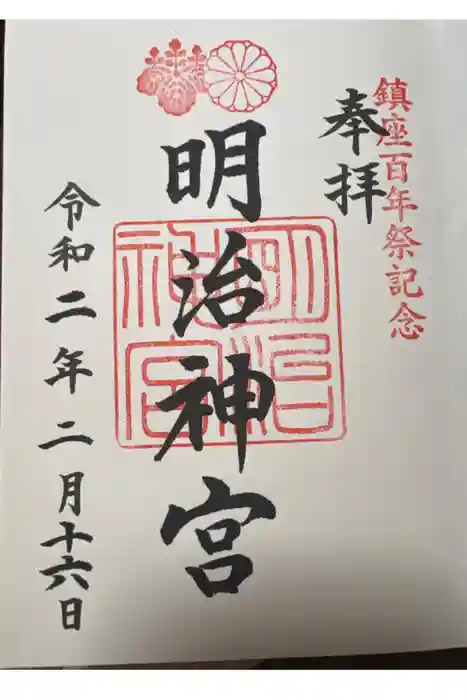 鎮座百年祭記念
奉拝
明治神宮
明治神宮
令和二年二月十六日